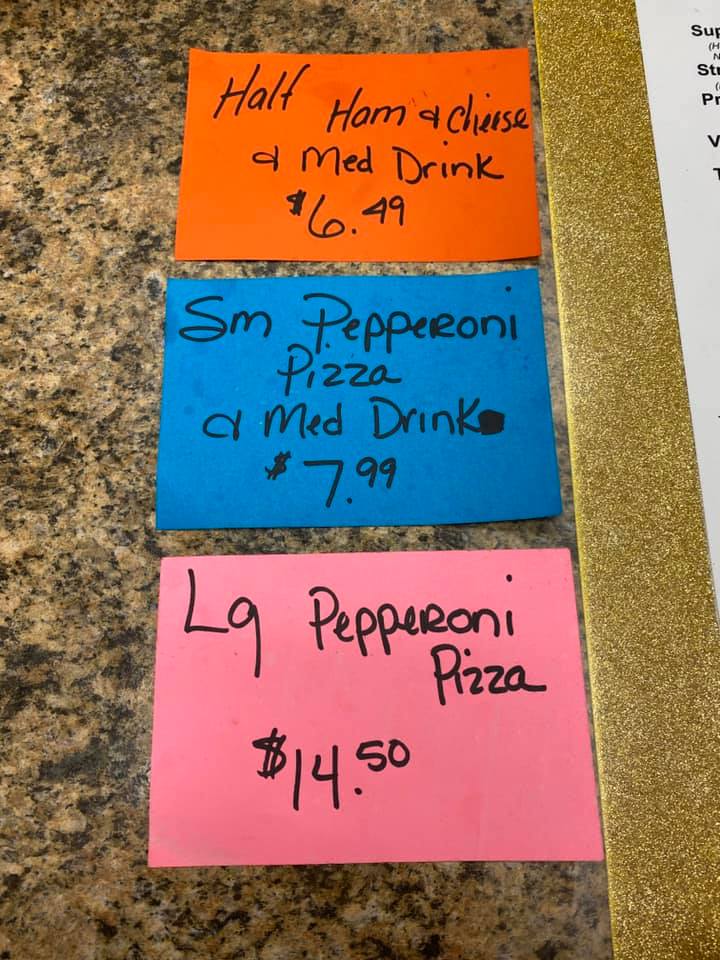 Half Ham & Cheese
& Med Drink
$6.49
Sm Pepperoni
Pizza
& Med Drink
$7.99
Lg Pepperoni
Pizza
$14.50